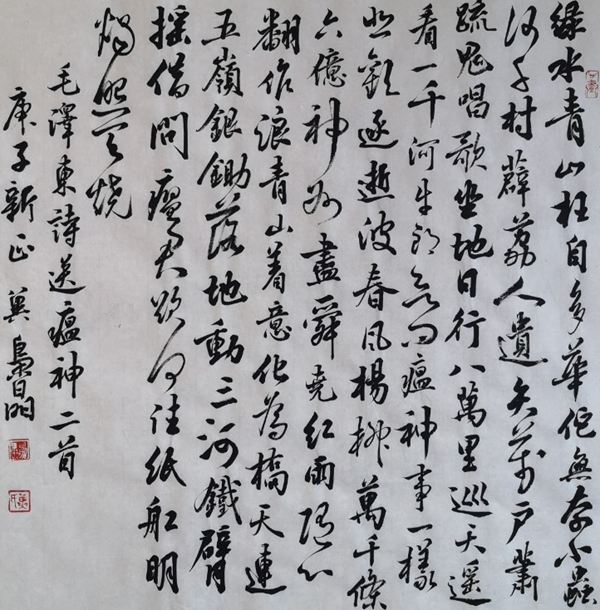 綠水青山枉自多華佗無奈小蟲
何千村薜荔人遺矢萬戶蕭
疏鬼唱歌坐地日行八萬里巡天遙
看一千河牛郎欲問瘟神事一樣
悲歡逐逝波春風楊柳萬千條
六億神州盡舜堯紅雨隨心
翻作浪青山着意化為橋天連
五嶺銀鋤落地動三河鐵臂
搖借問瘟君欲何往紙船明
燭照天燒
毛澤東詩送瘟神二首
庚子新正